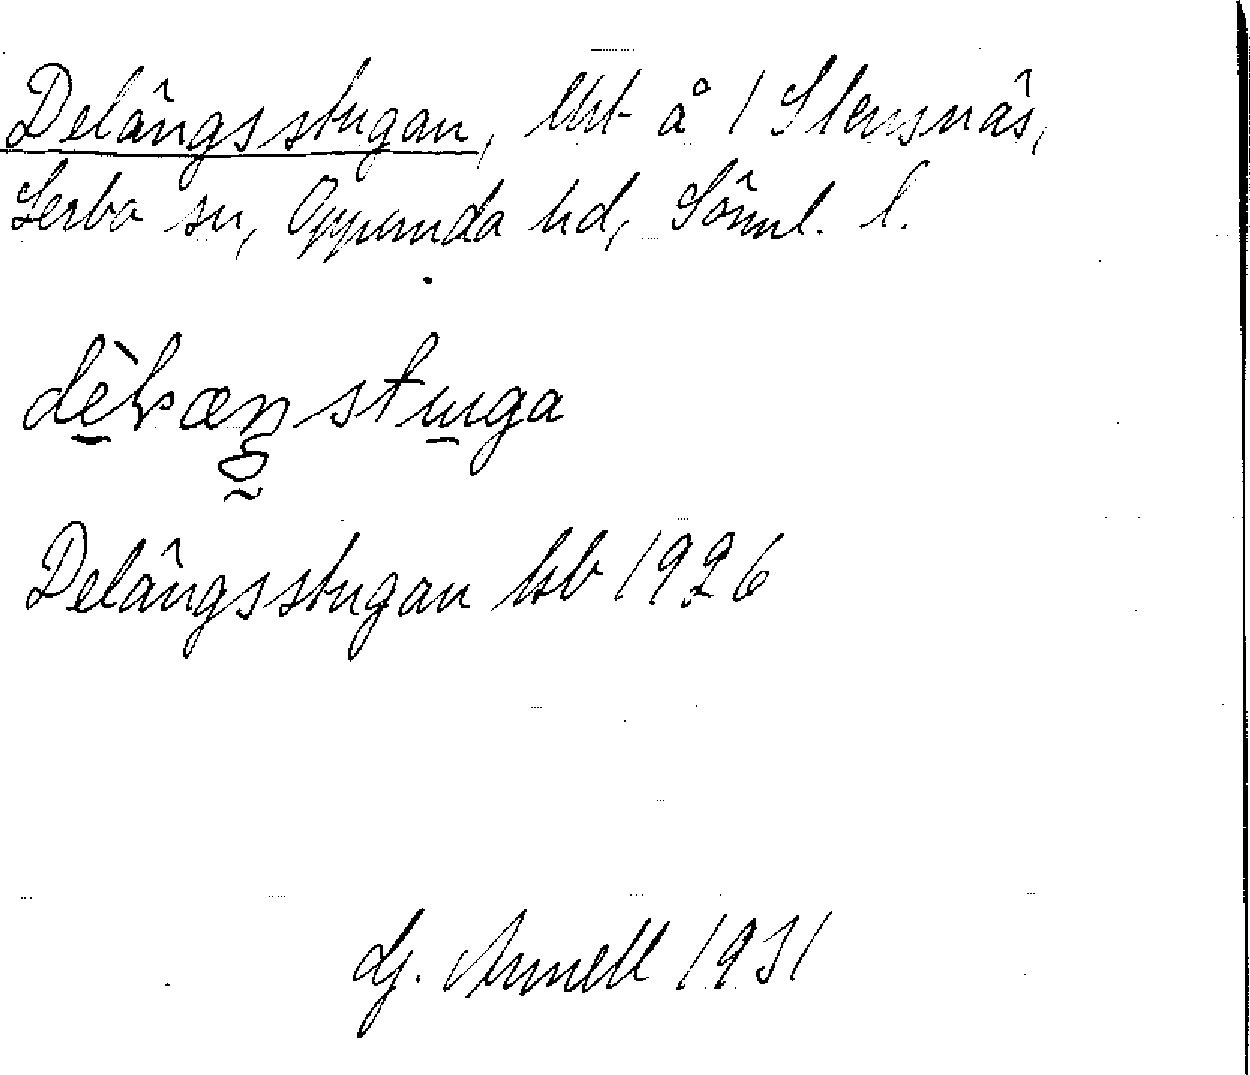 Delängsstugan, lht å 1 Stensnäs,
Lerbo sn, Oppunda hd, Söml. l.
Delängsstugan kb 1926
G. Arnell 1931